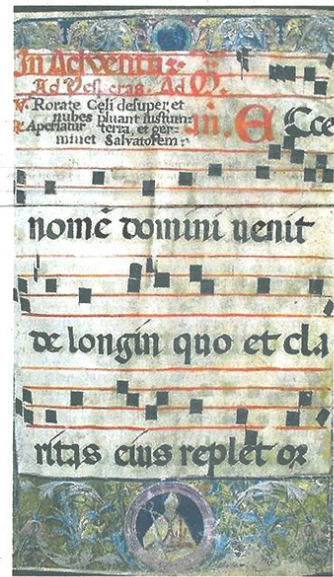 In Adventu
Ad Vesperas. Ad M.
V. Rorate Celi desuper, et
nubes pluant iustum:
R. Aperiatur terra, et ger-
minet Salvatorem:
Ecce
nomē domini uenit
de longin quo et cla
ritas eius replet or